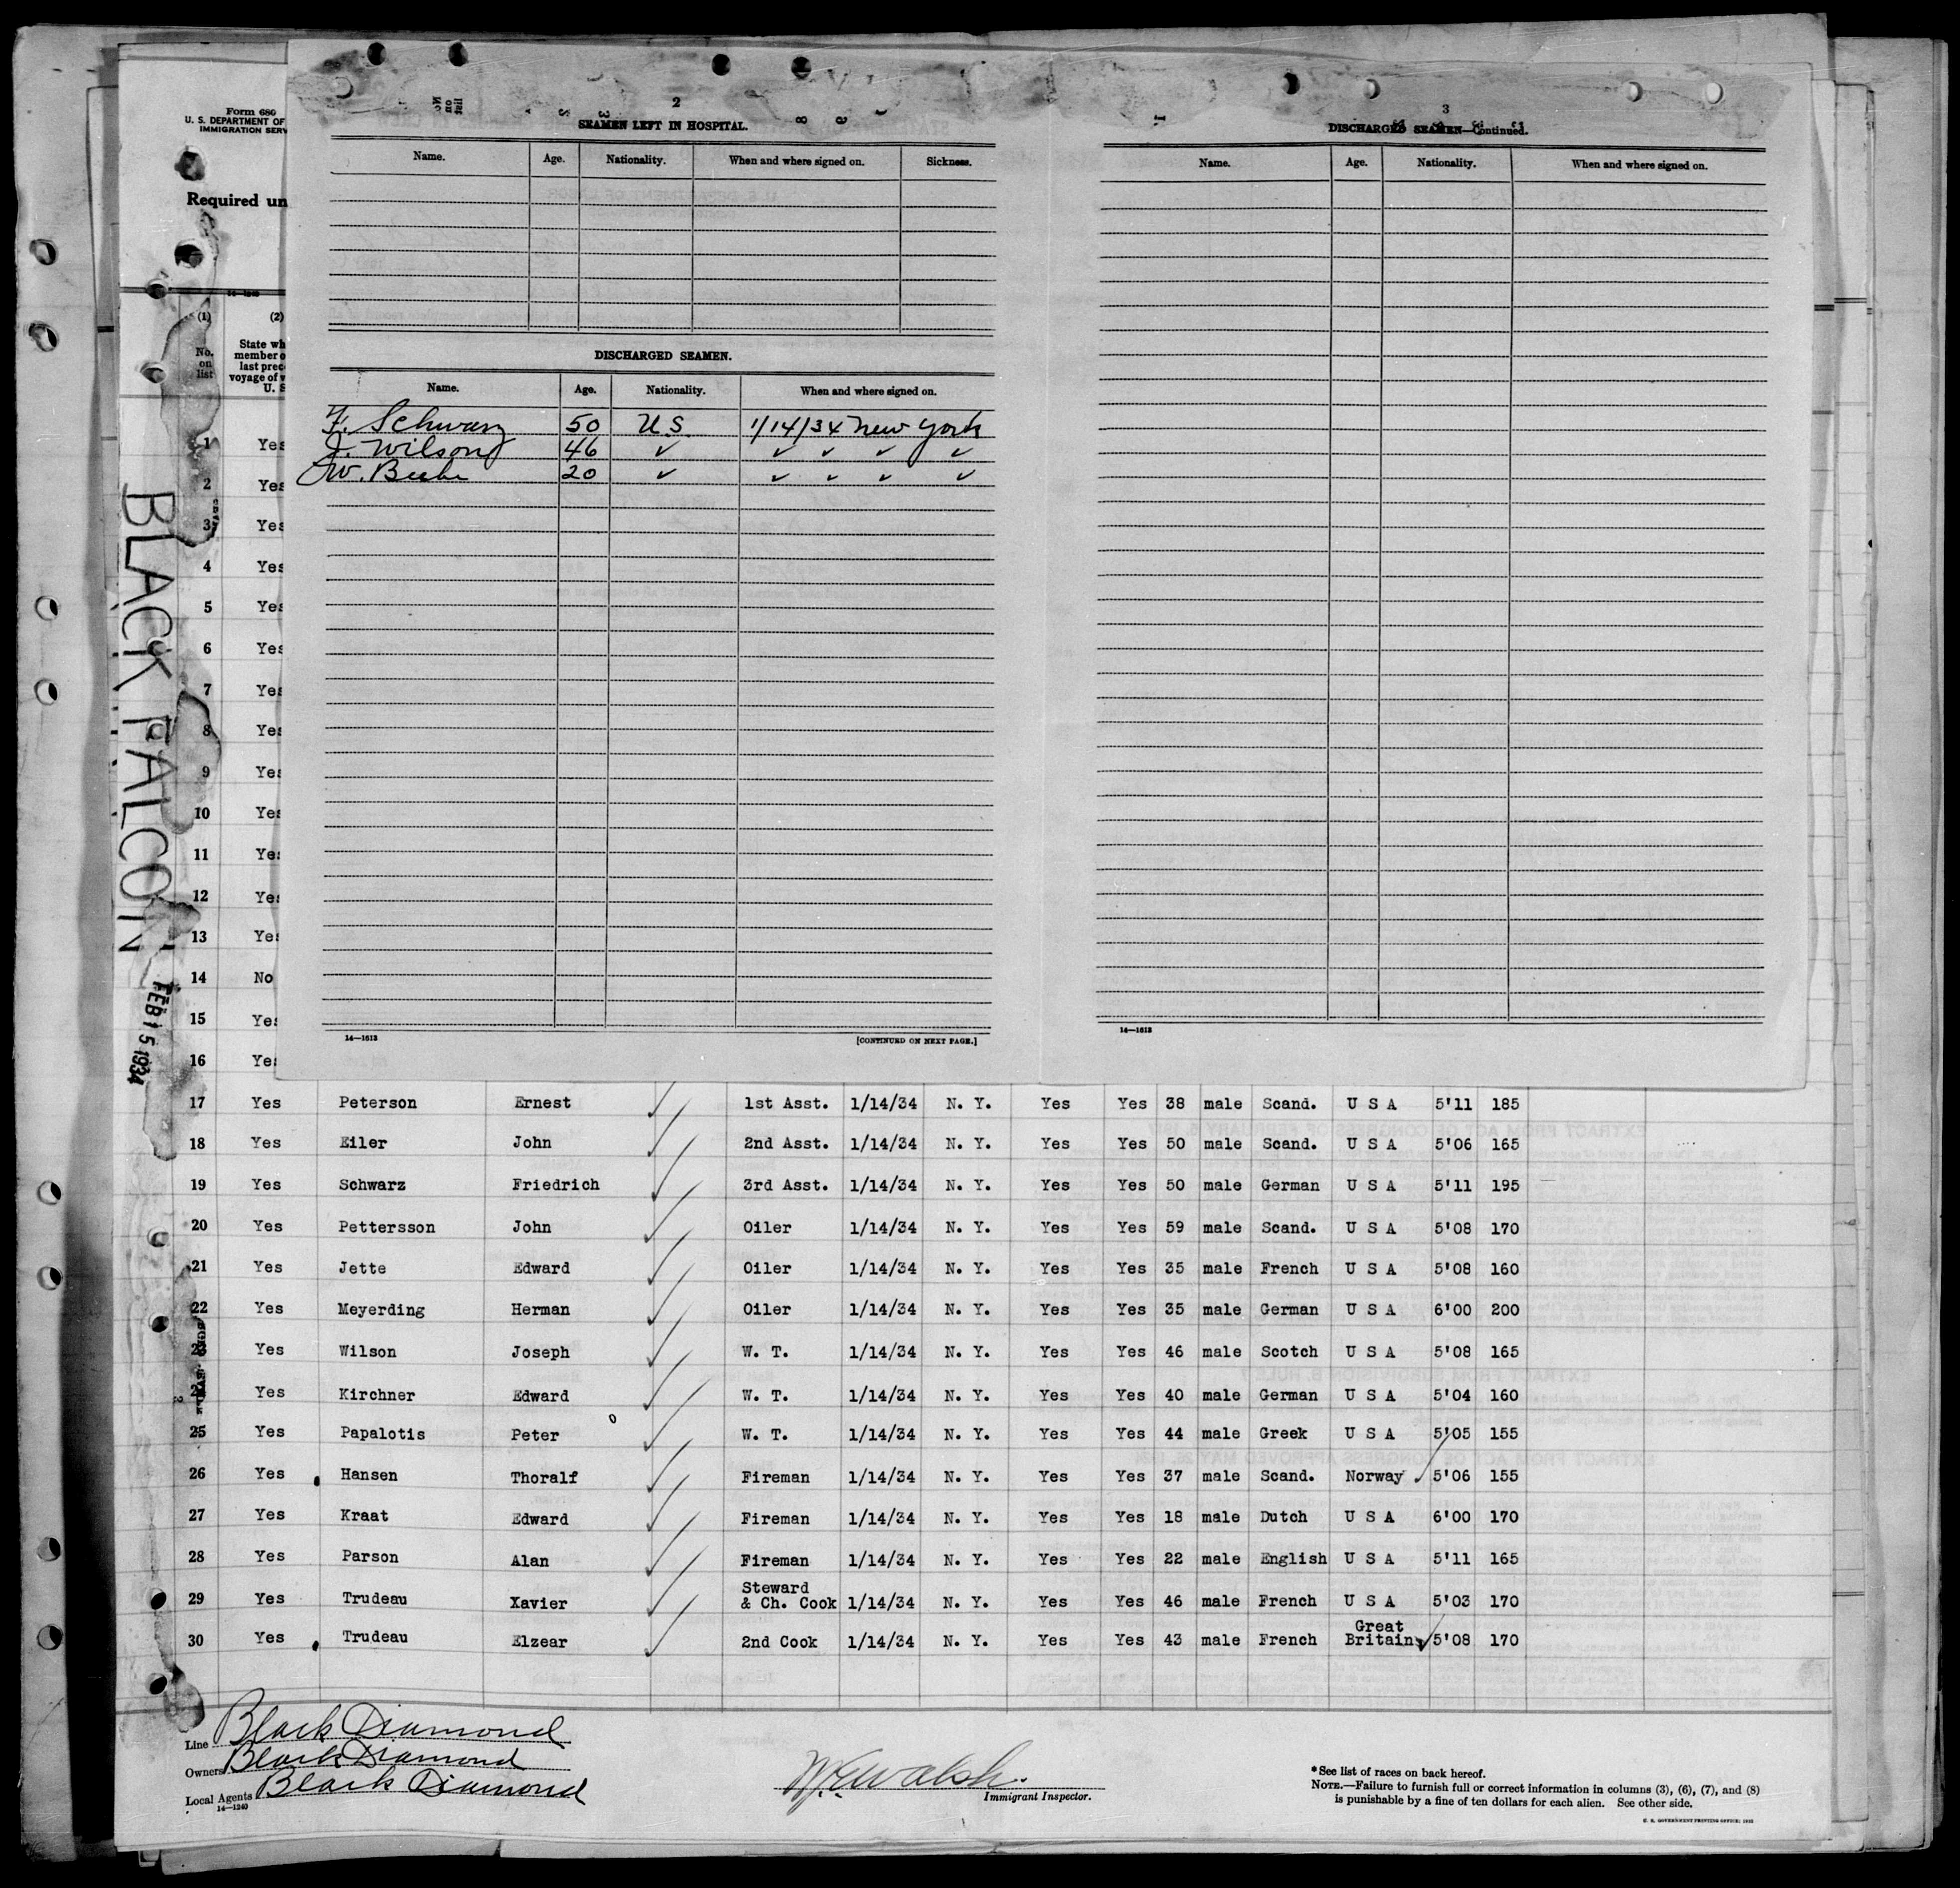 Form 680
U. S. DEPARTMENT OF
IMMIGRATION SERV
Required un
14-1240
(1) (2)
No. on list
State wh
member o
last prec
voyage of v
U. S
1 Yes
2 Yes
3 Yes
4 Yes
5 Yes
6 Yes
7 Yes
8 Yes
9 Yes
10 Yes
11 Yes
12 Yes
13 Yes
14 No
15 Yes
16 Yes
BLACK FALCON
FEB 15 1934
No. on list
2
SEAMEN LEFT IN HOSPITAL.
Name. Age. Nationality. When and where signed on. Sickness.
DISCHARGED SEAMEN.
Name. Age. Nationality. When and where signed on.
F. Schwarz 50 U S 1/14/34 New York
J. Wilson 46 ✓ ✓ ✓ ✓ ✓
W. Beebe 20 ✓ ✓ ✓ ✓ ✓
14—1613
[CONTINUED ON NEXT PAGE.]
3
DISCHARGED SEAMEN—Continued.
Name. Age. Nationality. When and where signed on.
14—1613
17 Yes Peterson Ernest 1st Asst. 1/14/34 N. Y. Yes Yes 38 male Scand. U S A 5'11 185
18 Yes Eiler John 2nd Asst. 1/14/34 N. Y. Yes Yes 50 male Scand. U S A 5'06 165
19 Yes Schwarz Friedrich 3rd Asst. 1/14/34 N. Y. Yes Yes 50 male German U S A 5'11 195
20 Yes Pettersson John Oiler 1/14/34 N. Y. Yes Yes 59 male Scand. U S A 5'08 170
21 Yes Jette Edward Oiler 1/14/34 N. Y. Yes Yes 35 male French U S A 5'08 160
22 Yes Meyerding Herman Oiler 1/14/34 N. Y. Yes Yes 35 male German U S A 6'00 200
23 Yes Wilson Joseph W. T. 1/14/34 N. Y. Yes Yes 46 male Scotch U S A 5'08 165
24 Yes Kirchner Edward W. T. 1/14/34 N. Y. Yes Yes 40 male German U S A 5'04 160
25 Yes Papalotis Peter W. T. 1/14/34 N. Y. Yes Yes 44 male Greek U S A 5'05 155
26 Yes Hansen Thoralf Fireman 1/14/34 N. Y. Yes Yes 37 male Scand. Norway 5'06 155
27 Yes Kraat Edward Fireman 1/14/34 N. Y. Yes Yes 18 male Dutch U S A 6'00 170
28 Yes Parson Alan Fireman 1/14/34 N. Y. Yes Yes 22 male English U S A 5'11 165
29 Yes Trudeau Xavier Steward & Ch. Cook 1/14/34 N. Y. Yes Yes 46 male French U S A 5'03 170
30 Yes Trudeau Elzear 2nd Cook 1/14/34 N. Y. Yes Yes 43 male French Great Britain 5'08 170
Line Black Diamond
Owners Black Diamond
Local Agents Black Diamond
14—1240
W. E. Walsh.
Immigrant Inspector.
*See list of races on back hereof.
NOTE.—Failure to furnish full or correct information in columns (3), (6), (7), and (8)
is punishable by a fine of ten dollars for each alien. See other side.
U. S. GOVERNMENT PRINTING OFFICE: 1932